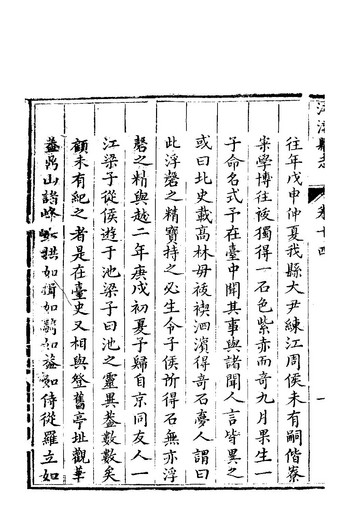 卷十四
往年戊申仲夏我縣大尹練江周侯未有嗣偕寮
寀學博往祓獨得一石色紫赤而奇九月果生一
子命名式予在臺中聞其事與諸聞人言皆異之
或曰北史載高林母祓禊泗濱得奇石夢人謂曰
此浮磬之精寶持之必生令子侯所得石無亦浮
磬之精與越二年庚戌初夏予歸自京同友人一
江梁子從侯遊于池梁子曰池之靈異蓋數數矣
顧未有紀之者是在臺史又相與登舊亭址觀華
蓋鼎山諸峰 拱如揖如 如 如侍從羅立如